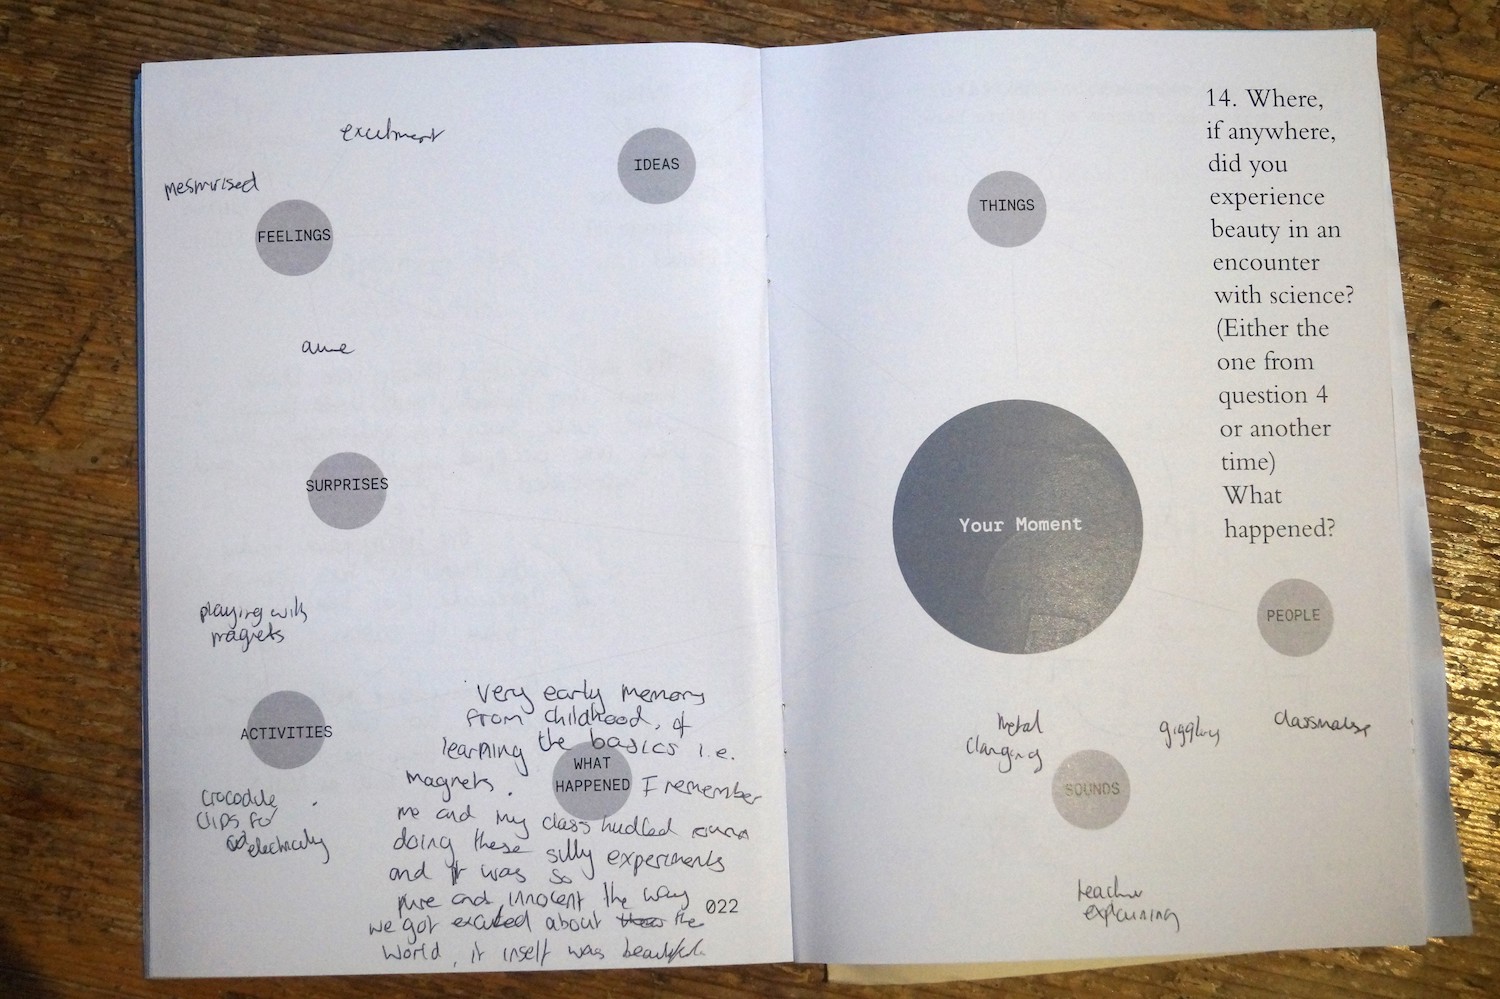 excitment
mesmurised
FEELINGS
IDEAS
awe
SURPRISES
playing with
magnets
ACTIVITIES
crocodile
clips for
electricity
Very early memory
from childhood, of
learning the basics i.e.
magnets. I remember
WHAT
HAPPENED
me and my class hudled round
doing these silly experiments
and it was so
pure and innocent the way
we got excited about the
world, it inself was beautiful.
022
THINGS
14. Where,
if anywhere,
did you
experience
beauty in an
encounter
with science?
(Either the
one from
question 4
or another
time)
What
happened?
Your Moment
PEOPLE
classmates
metal
clanging
giggling
SOUNDS
teacher
explaining